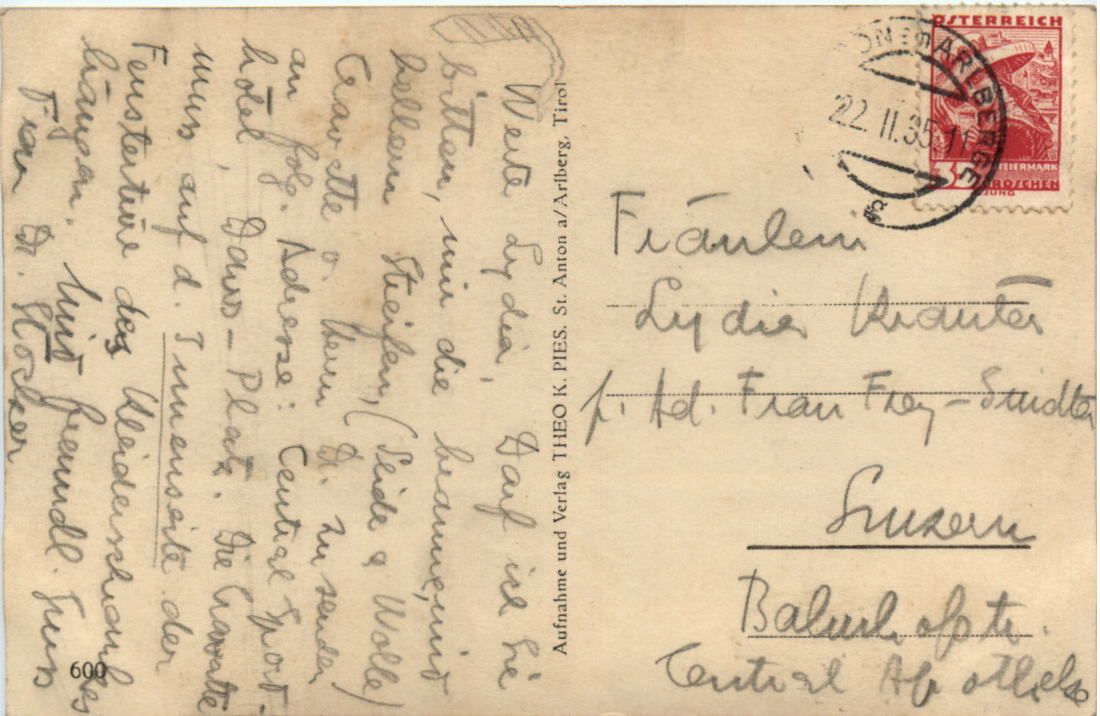 Werte Lydia, Darf ich Sie
bitten, mir die braune, mit
hellem Streifen, (Seide & Wolle)
Cravatte v. Herrn Dr. zu senden
an folg. Adresse: Central Sport-
hôtel, Davos-Platz. Die Cravatte
muss auf d. Innenseite der
Fenstertüre des Kleiderschrankes
hängen. Mit freundl. Gruss
Frau Dr. Stocker
600
Aufnahme und Verlag THEO K. PIES. St. Anton a/Arlberg, Tirol
ÖSTERREICH
STEIERMARK
GROSCHEN
JUNG
ARLBERGE
22.II.35.11
Fräulein
Lydia Kräuter
p. Ad. Frau Frey-
Luzern
Bahnhofstr.
Central Apotheke